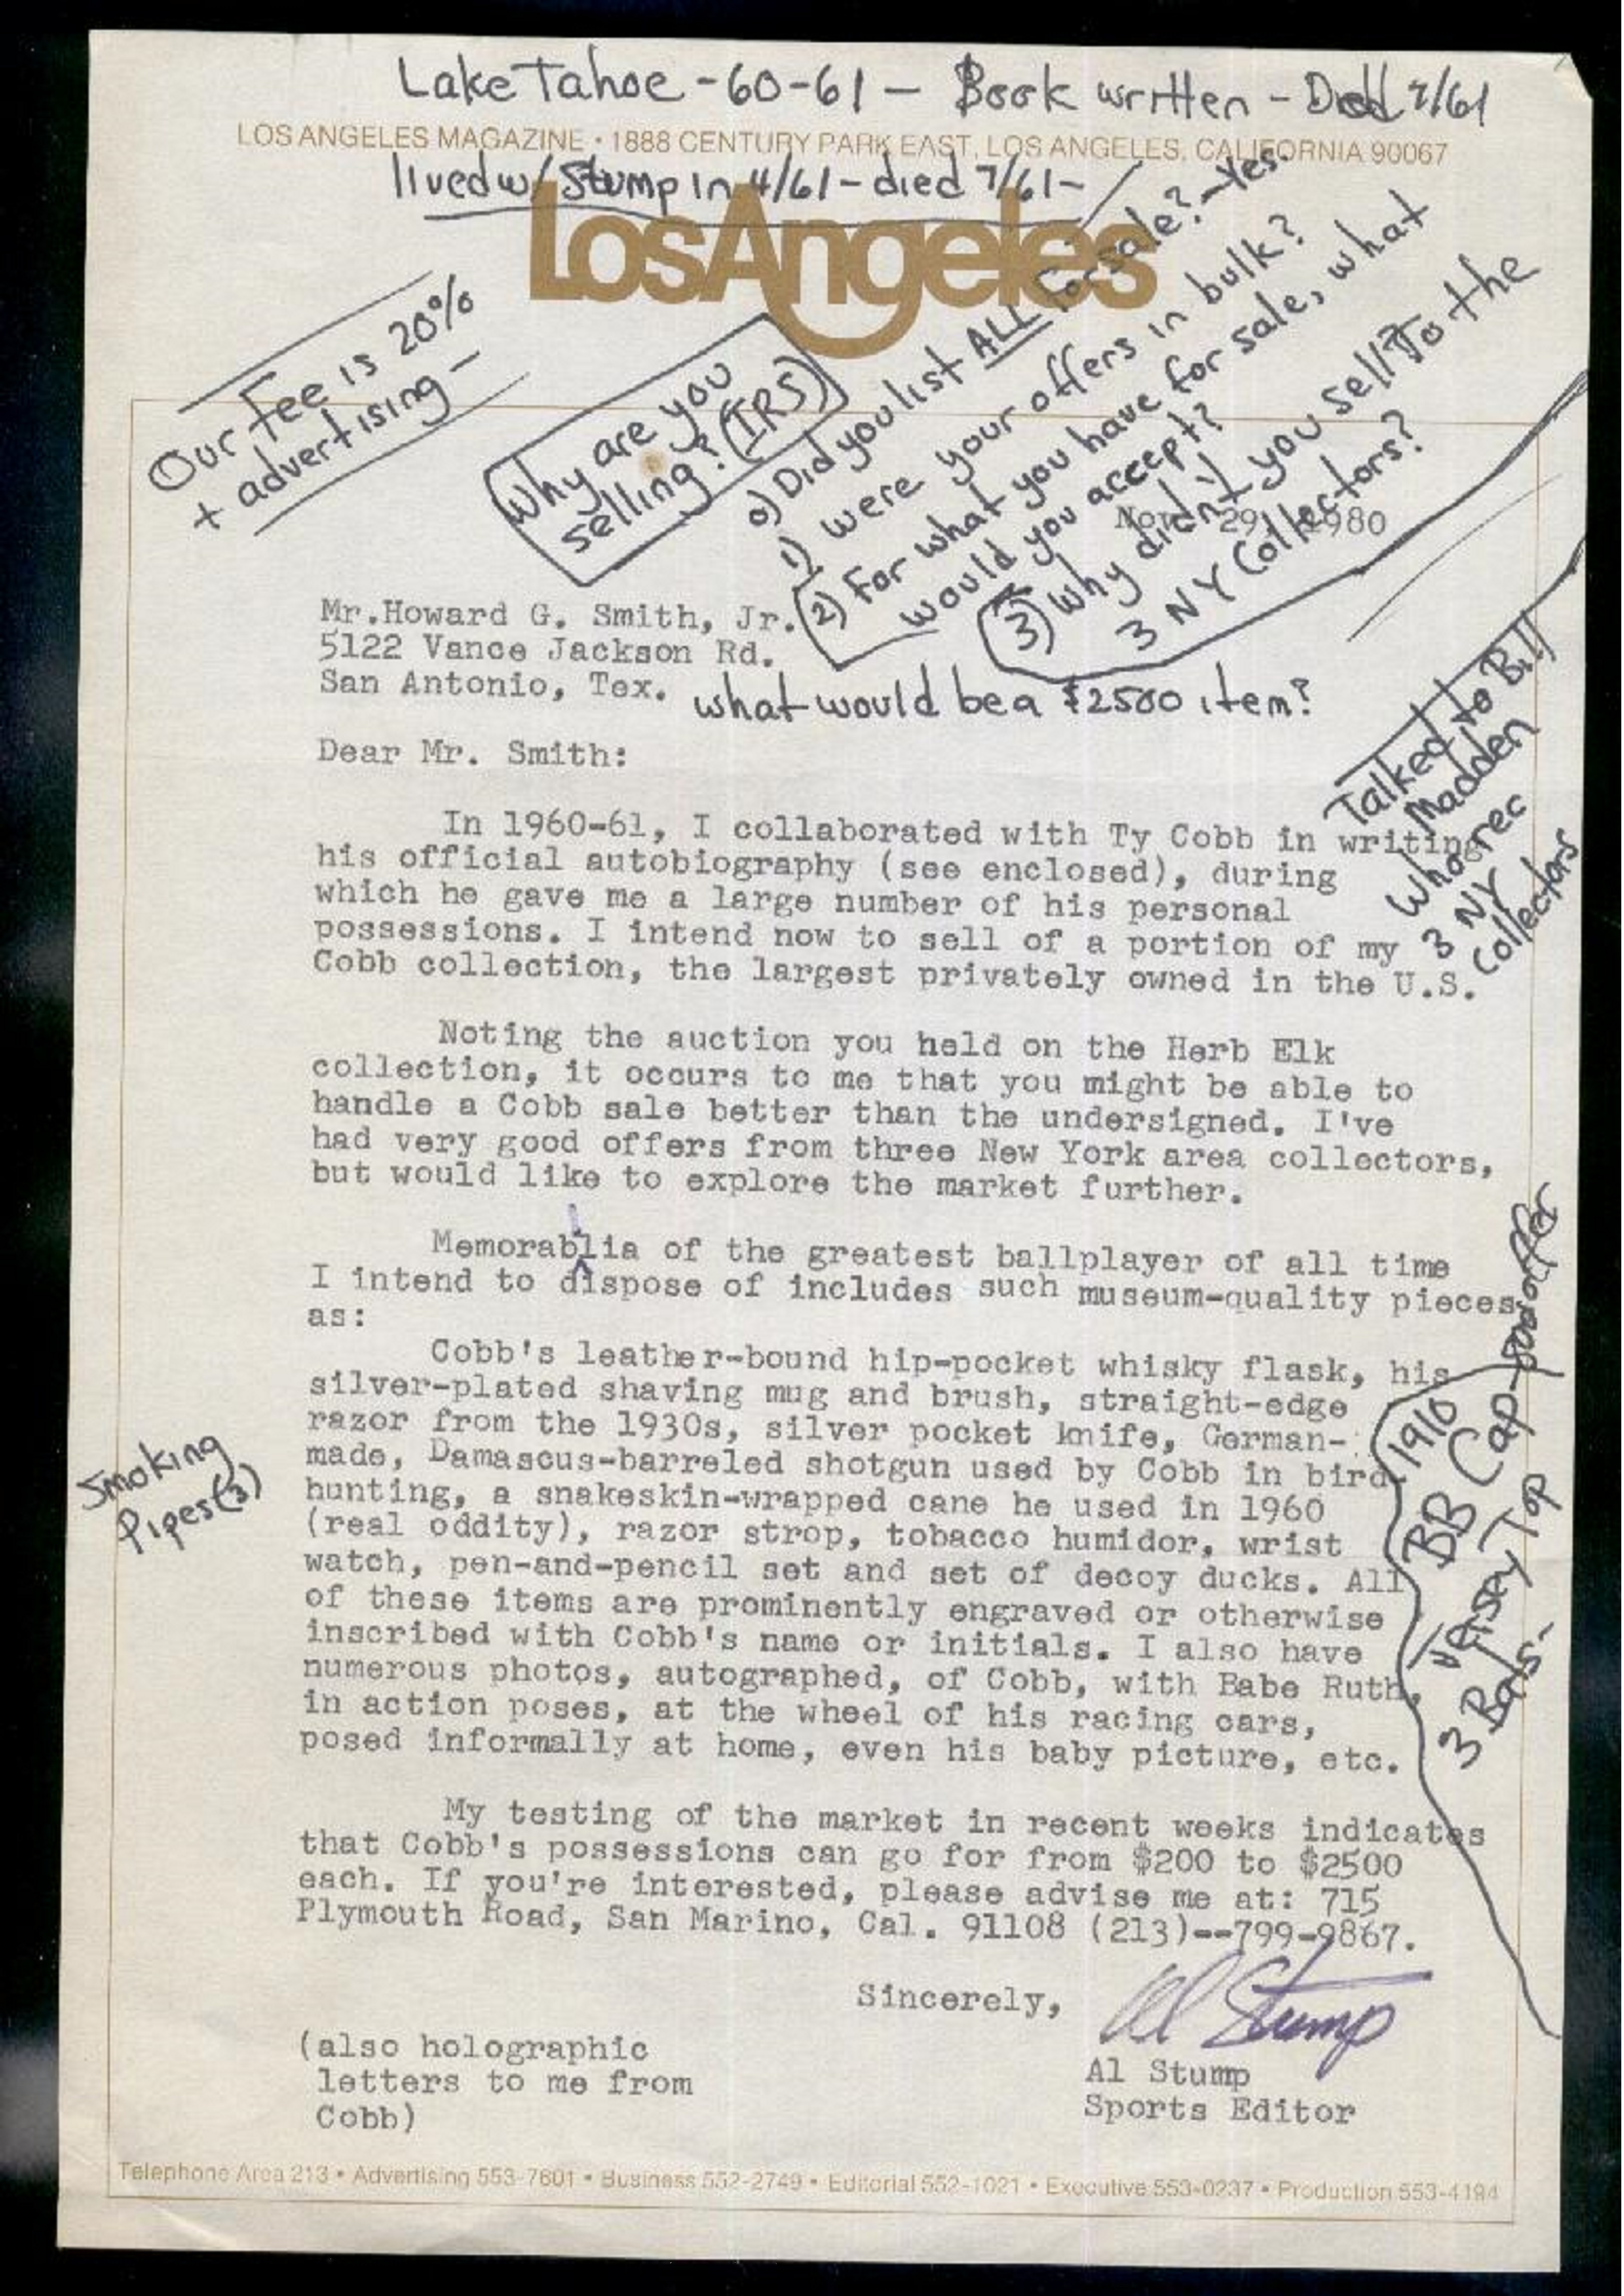 Lake Tahoe - 60-61 - Book written - Died 7/61
LOS ANGELES MAGAZINE • 1888 CENTURY PARK EAST, LOS ANGELES, CALIFORNIA 90067
lived w/ Stump in 4/61 - died 7/61 -
LosAngeles
Our Fee is 20%
+ advertising -
Why are you
selling? (IRS)
0) Did you list ALL for sale? - Yes.
1) Were your offers in bulk?
2) For what you have for sale, what
would you accept?
3) Why didn't you sell to the
3 NY Collectors?
Nov. 29, 1980
Mr.Howard G. Smith, Jr.
5122 Vance Jackson Rd.
San Antonio, Tex.
what would be a $2500 item?
Talked to Bill
Madden
Who rec
3 NY
Collectors
Dear Mr. Smith:
In 1960-61, I collaborated with Ty Cobb in writing
his official autobiography (see enclosed), during
which he gave me a large number of his personal
possessions. I intend now to sell of a portion of my
Cobb collection, the largest privately owned in the U.S.
Noting the auction you held on the Herb Elk
collection, it occurs to me that you might be able to
handle a Cobb sale better than the undersigned. I've
had very good offers from three New York area collectors,
but would like to explore the market further.
i
Memorablia of the greatest ballplayer of all time
I intend to dispose of includes such museum-quality pieces
as:
Cobb's leather-bound hip-pocket whisky flask, his
silver-plated shaving mug and brush, straight-edge
razor from the 1930s, silver pocket knife, German-
made, Damascus-barreled shotgun used by Cobb in bird
hunting, a snakeskin-wrapped cane he used in 1960
(real oddity), razor strop, tobacco humidor, wrist
watch, pen-and-pencil set and set of decoy ducks. All
of these items are prominently engraved or otherwise
inscribed with Cobb's name or initials. I also have
numerous photos, autographed, of Cobb, with Babe Ruth,
in action poses, at the wheel of his racing cars,
posed informally at home, even his baby picture, etc.
Smoking
Pipes(3)
1910
BB Cap -
Jersey Top
3 Bats -
My testing of the market in recent weeks indicates
that Cobb's possessions can go for from $200 to $2500
each. If you're interested, please advise me at: 715
Plymouth Road, San Marino, Cal. 91108 (213)--799-9867.
Sincerely,
Al Stump
(also holographic
letters to me from
Cobb)
Al Stump
Sports Editor
Telephone Area 213 • Advertising 553-7601 • Business 552-2749 • Editorial 552-1021 • Executive 553-0237 • Production 553-4194